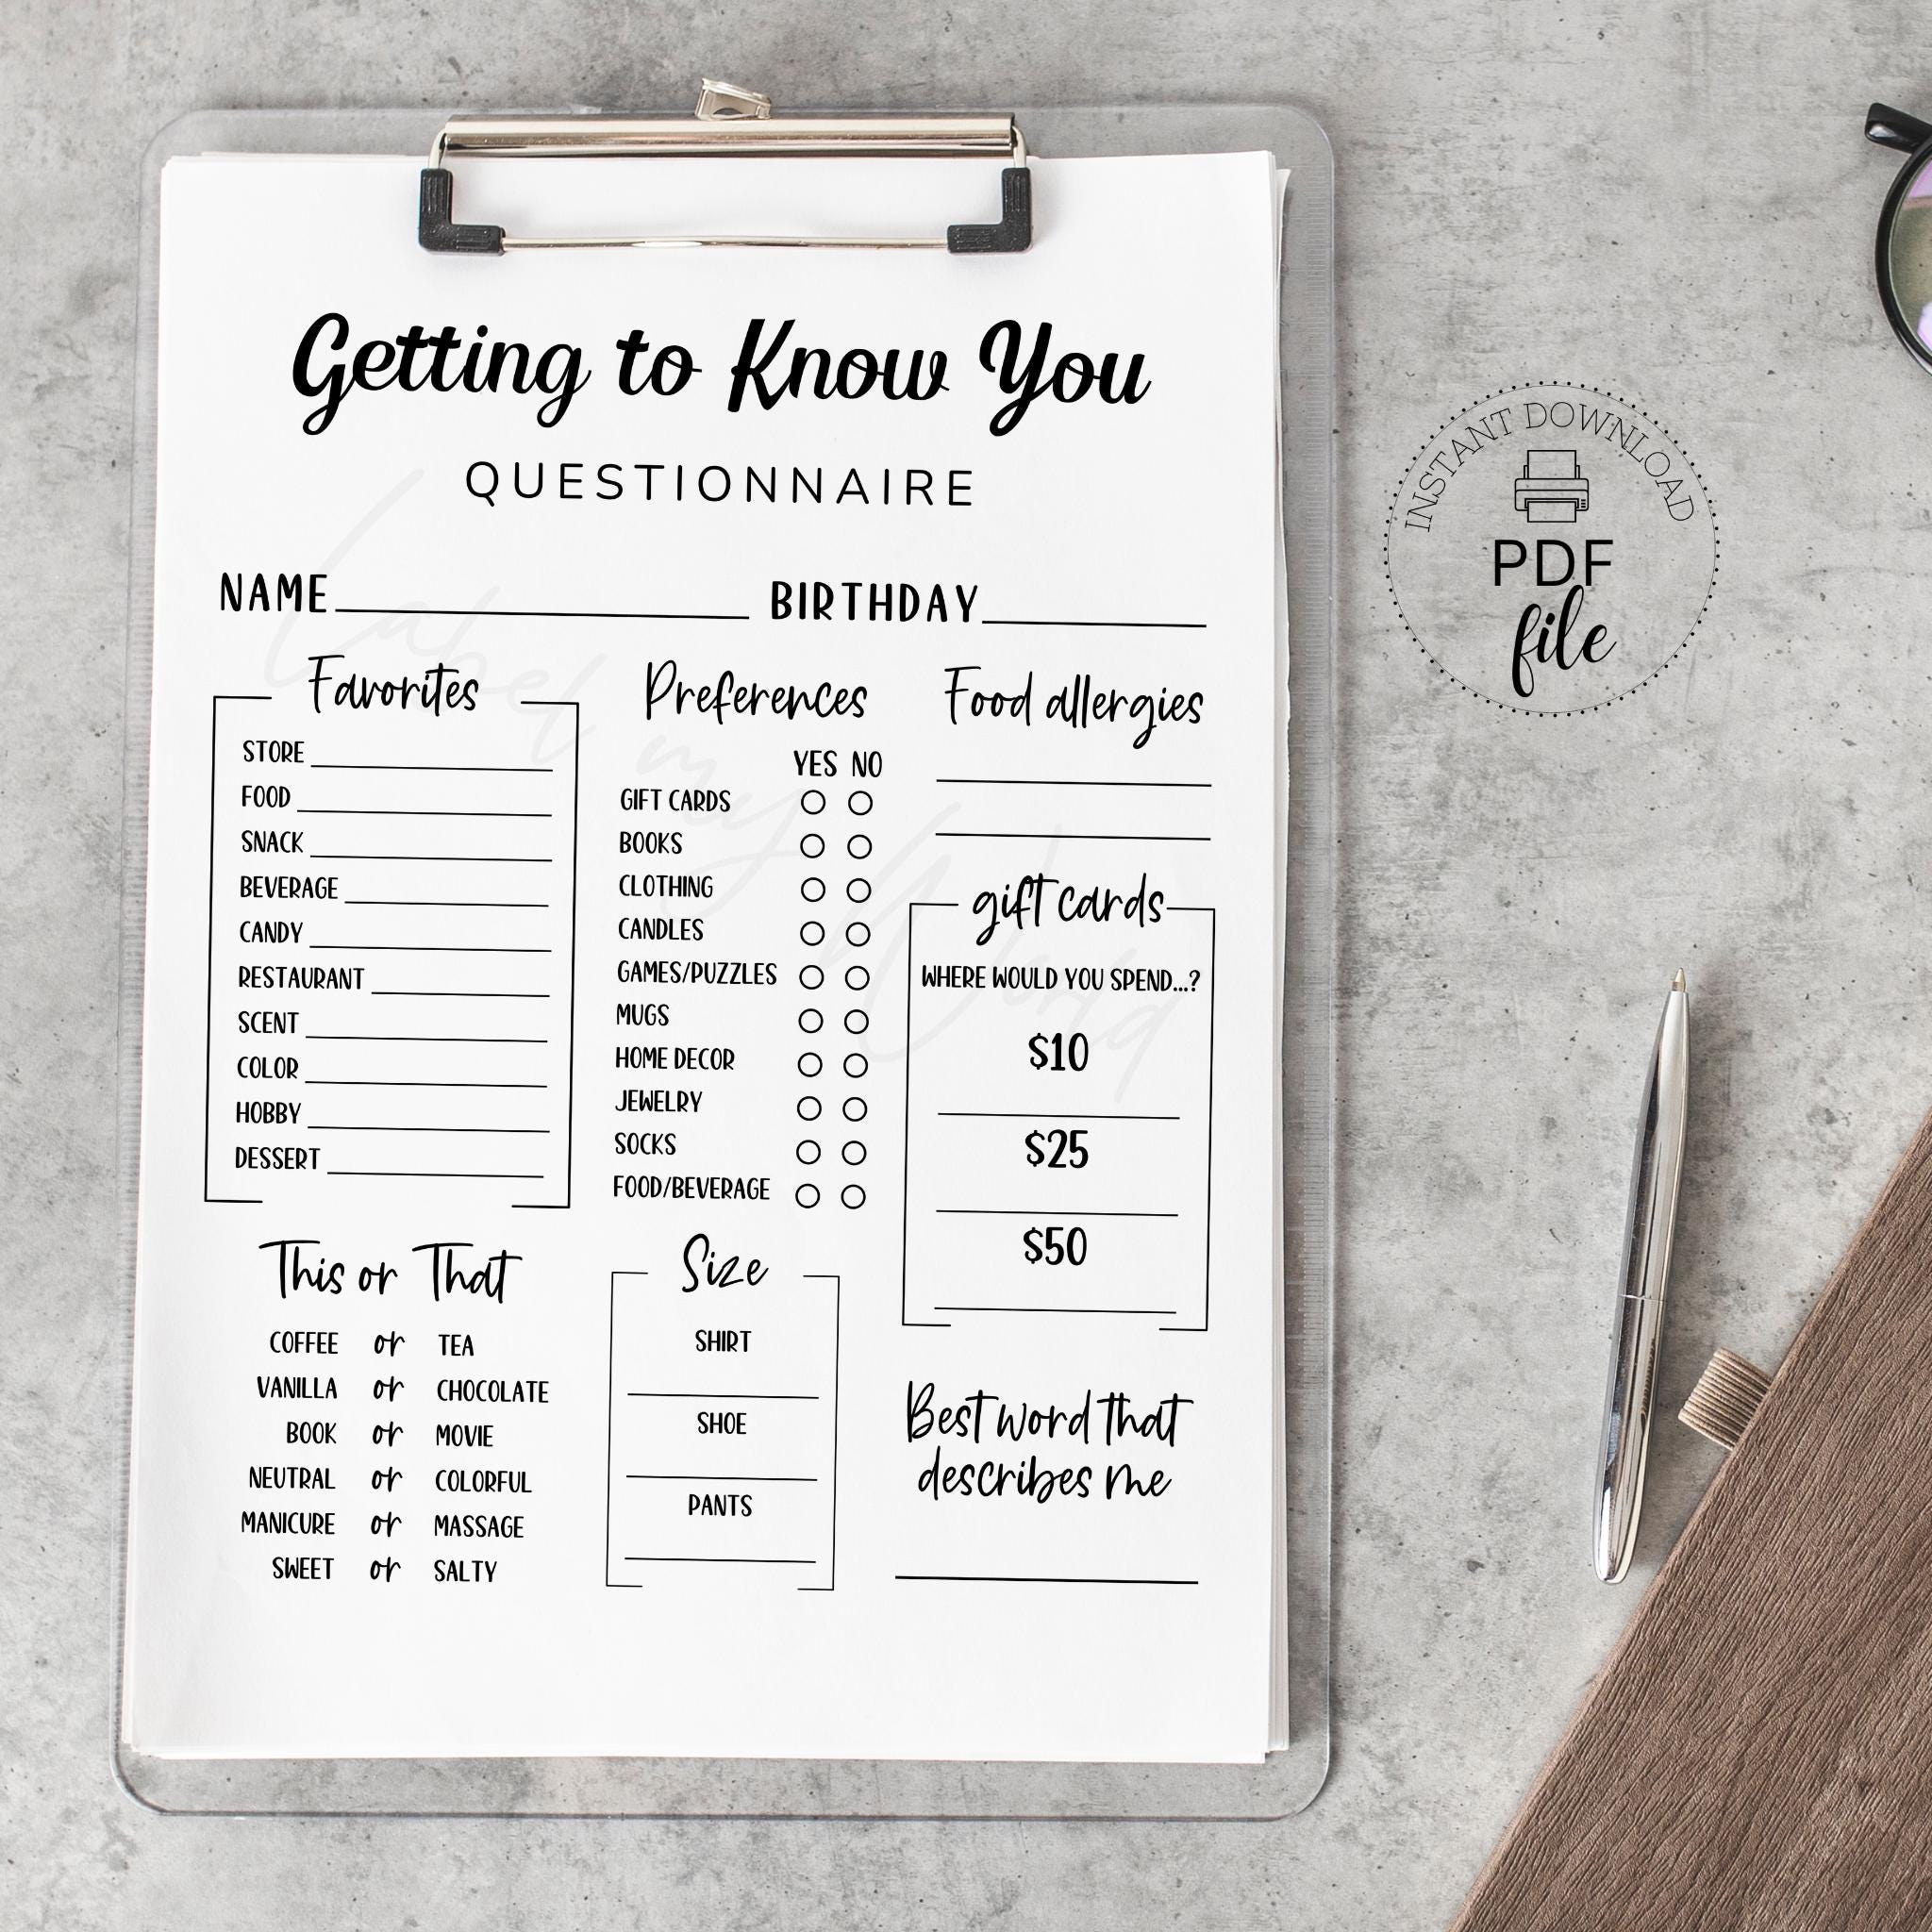 Getting to Know You
QUESTIONNAIRE
NAME
BIRTHDAY
Favorites
STORE
FOOD
SNACK
BEVERAGE
CANDY
RESTAURANT
SCENT
COLOR
HOBBY
DESSERT
Preferences
YES NO
GIFT CARDS
BOOKS
CLOTHING
CANDLES
GAMES/PUZZLES
MUGS
HOME DECOR
JEWELRY
SOCKS
FOOD/BEVERAGE
Food allergies
gift cards
WHERE WOULD YOU SPEND...?
$10
$25
$50
This or That
COFFEE or TEA
VANILLA or CHOCOLATE
BOOK or MOVIE
NEUTRAL or COLORFUL
MANICURE or MASSAGE
SWEET or SALTY
Size
SHIRT
SHOE
PANTS
Best word that
describes me
Label my World
INSTANT DOWNLOAD
PDF
file